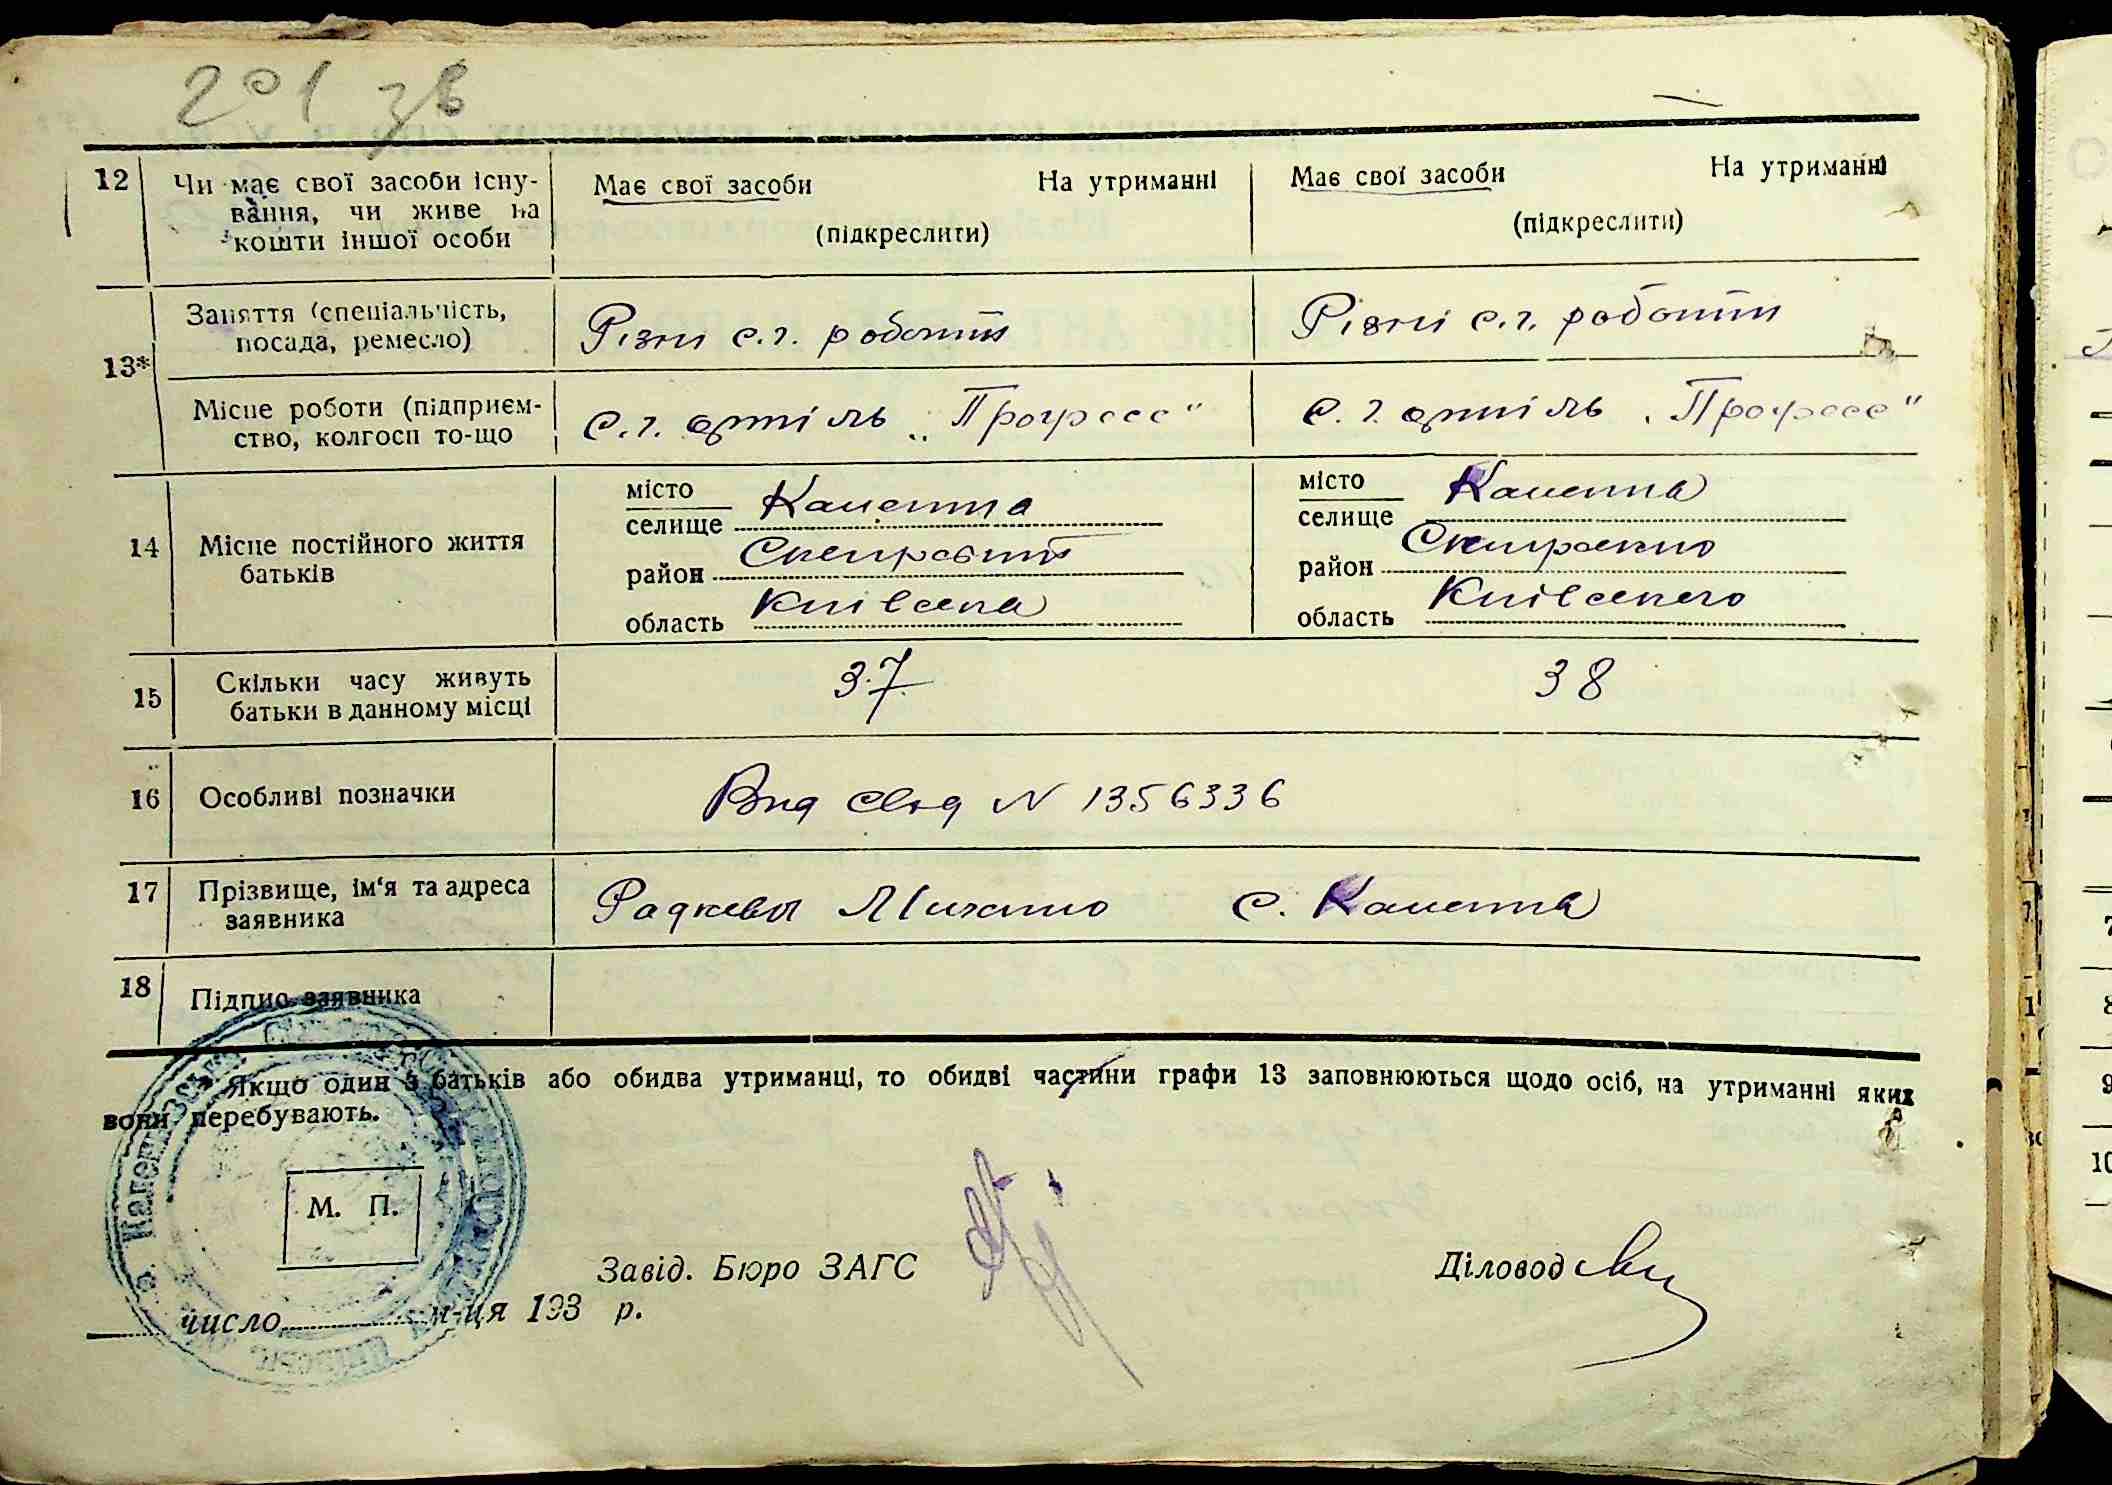 201 зв
12 Чи має свої засоби існу- Має свої засоби На утриманні Має свої засоби На утриманні
вання, чи живе на
кошти іншої особи (підкреслити) (підкреслити)
13* Заняття (спеціальчість, Різні с.г. роботи Різні с.г. роботи
посада, ремесло)
Місце роботи (підприєм- с.г. артіль „Прогресс" с.г. артіль „Прогресс"
ство, колгосп то-що
14 Місце постійного життя місто Каменна місто Каменна
батьків селище селище
район район
область Київська область Київського
15 Скільки часу живуть 37 38
батьки в данному місці
16 Особливі позначки Вид свід N 1356336
17 Прізвище, ім'я та адреса с. Каменна
заявника
18 Підпис заявника
Якщо один з батьків або обидва утриманці, то обидві частини графи 13 заповнюються щодо осіб, на утриманні яких
вони перебувають.
М. П.
Завід. Бюро ЗАГС Діловод
число м-ця 193 р.